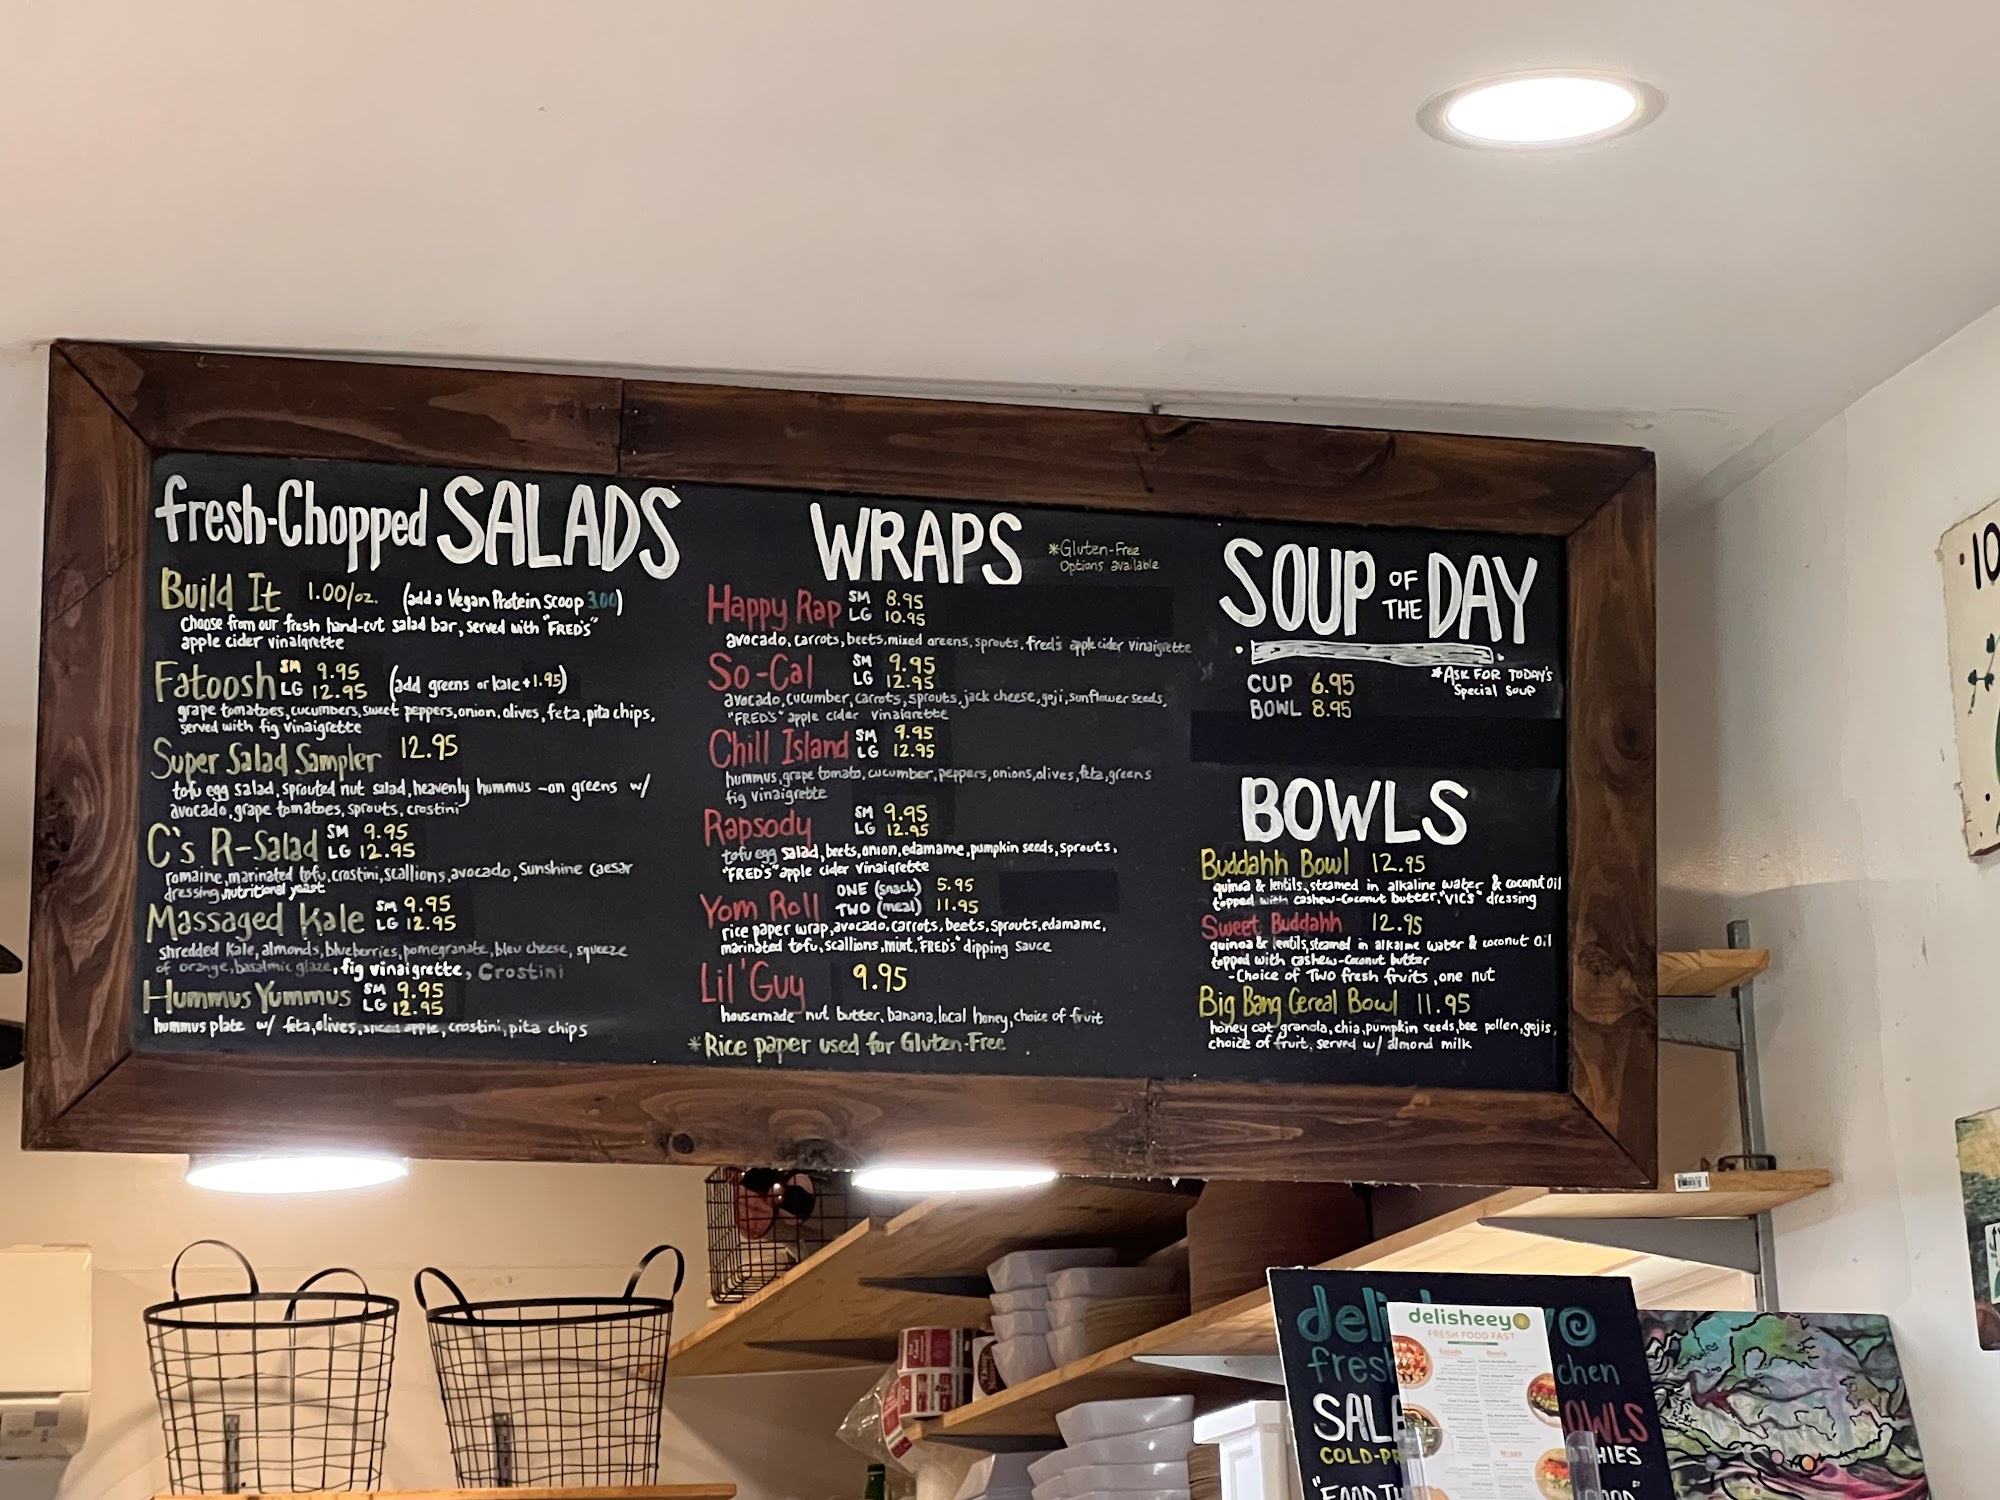 fresh-Chopped SALADS
Build It 1.00/oz. (add a Vegan Protein Scoop 3.00)
choose from our fresh hand-cut salad bar, served with "FRED's"
apple cider vinaigrette
Fatoosh SM 9.95
LG 12.95 (add greens or kale +1.95)
grape tomatoes, cucumbers, sweet peppers, onion, olives, feta, pita chips,
served with fig vinaigrette
Super Salad Sampler 12.95
tofu egg salad, sprouted nut salad, heavenly hummus -on greens w/
avocado, grape tomatoes, sprouts, crostini
C's R-Salad SM 9.95
LG 12.95
romaine, marinated tofu, crostini, scallions, avocado, Sunshine Caesar
dressing, nutritional yeast
Massaged Kale SM 9.95
LG 12.95
shredded kale, almonds, blueberries, pomegranate, bleu cheese, squeeze
of orange, basalmic glaze, fig vinaigrette, Crostini
Hummus Yummus SM 9.95
LG 12.95
hummus plate w/ feta, olives, sliced apple, crostini, pita chips
WRAPS
*Gluten-Free
Options available
Happy Rap SM 8.95
LG 10.95
avocado, carrots, beets, mixed greens, sprouts, fred's apple cider vinaigrette
So-Cal SM 9.95
LG 12.95
avocado, cucumber, carrots, sprouts, jack cheese, goji, sunflower seeds,
"FRED's" apple cider vinaigrette
Chill Island SM 9.95
LG 12.95
hummus, grape tomato, cucumber, peppers, onions, olives, feta, greens
fig vinaigrette
Rapsody SM 9.95
LG 12.95
tofu egg salad, beets, onion, edamame, pumpkin seeds, sprouts,
"FRED's" apple cider vinaigrette
Yom Roll ONE (snack) 5.95
TWO (meal) 11.95
rice paper wrap, avocado, carrots, beets, sprouts, edamame,
marinated tofu, scallions, mint, "FRED's" dipping sauce
Lil' Guy 9.95
housemade nut butter, banana, local honey, choice of fruit
*Rice paper used for Gluten-Free
SOUP OF THE DAY
*ASK FOR TODAY'S
Special Soup
CUP 6.95
BOWL 8.95
BOWLS
Buddahh Bowl 12.95
quinoa & lentils, steamed in alkaline water & coconut oil
topped with cashew-coconut butter, "VIC'S" dressing
Sweet Buddahh 12.95
quinoa & lentils, steamed in alkaline water & coconut oil
topped with cashew-coconut butter
-Choice of TWO fresh fruits, one nut
Big Bang Cereal Bowl 11.95
honey oat granola, chia, pumpkin seeds, bee pollen, gojis,
choice of fruit, served w/ almond milk
10
delisheeyo
FRESH FOOD FAST
Salads Bowls
Wraps